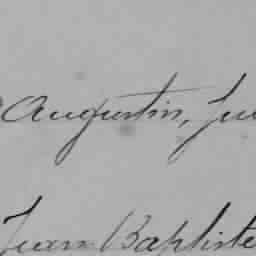 Augustin,
Jean Baptiste